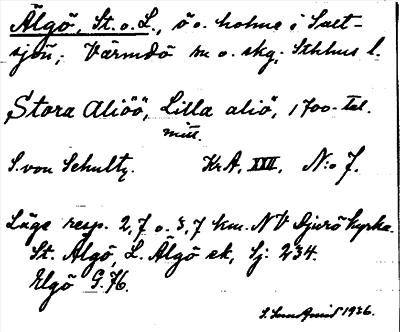 Älgö, St. o. L., ö o. holme i Salt-
sjön; Värmdö sn o. skg, Sthlms l.
Stora Aliöö, Lilla aliö, 1700-tal.
mitt.
S. von Schultz. KrA, XXII, N:o 7.
Läge resp. 2,7 o. 3,7 km. NV Djurö kyrka.
St. Älgö, L. Älgö ek, Sj: 234.
Elgö G.76.
1936.